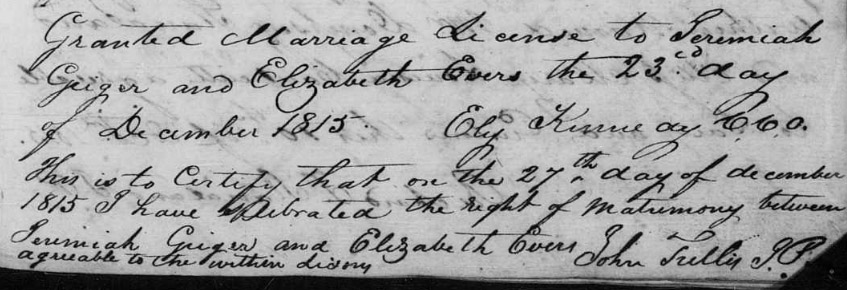 Granted Marriage License to Jeremiah
Geiger and Elizabeth Evers the 23.cd day
of December 1815 Ely Kennedy C.C.O.
This is to Certify that on the 27th day of december
1815 I have Selibrated the right of Matrimony between
Jeremiah Geiger and Elizabeth Evers John Tullis J.P.
agreeable to the within